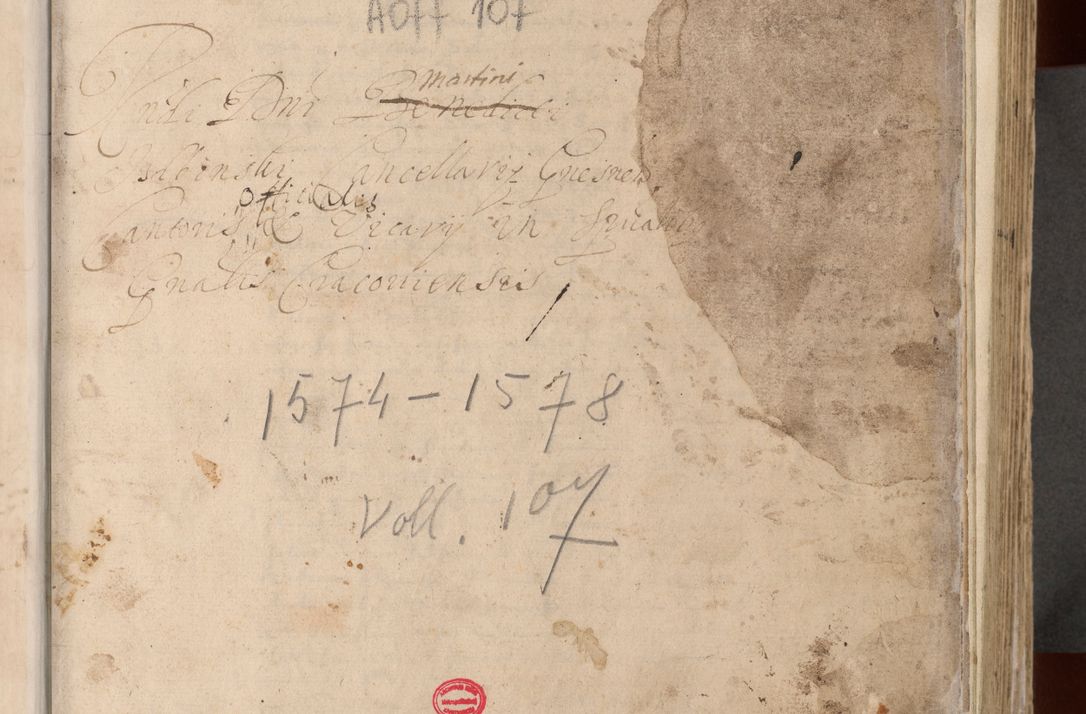 AOff 107
Rndi Dni Martini Benedicti
Cancellarij Gnesnen
Officialis
Cantoris & Vicarij in Spualibus
Gnalis Cracoviensis
1574-1578
Voll. 107